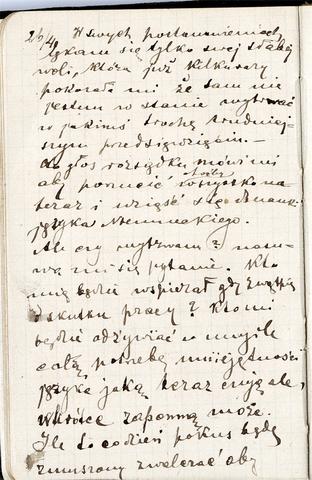 25/4 W swych postanowieniach
lękam się tylko swej słabej
woli, która już kilka razy
pokazała mi że sam nie
jestem w stanie wytrwać
w jakimś trochę trudniej-
szym przedsięwzięciu. —
głos rozsądku mówi mi
aby porzucić to wszystko na
teraz i wziąść się do nauki
języka Niemieckiego.
Ale czy wytrwam? nasu-
wa mi się pytanie. Kto
mię będzie wspierał gdy zwątpię
o skutku pracy? Kto mi
będzie odżywiać w myśli
całą potrzebę umiejętności
języka jaką teraz czuję ale,
wkrótce zapomnę może.
Ile to codzień pokus będę
zmuszony zwalczać aby